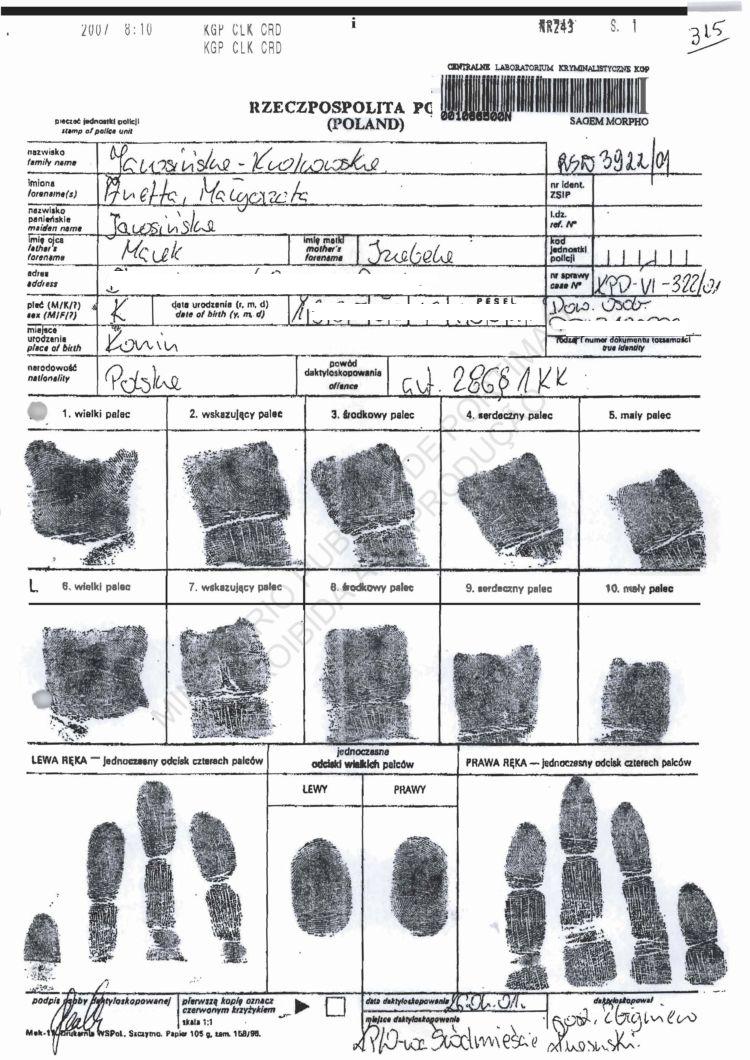 2007 8:10 KGP CLK CRD i NR243 S. 1
KGP CLK CRD
315
CENTRALNE LABORATORIUM KRYMINALISTYCZNE KGP
RZECZPOSPOLITA PO
001066500N
(POLAND)
SAGEM MORPHO
pieczęć jednostki policji
stamp of police unit
nazwisko
family name
3922/01
imiona
forename(s)
Anetta, Małgorzata
nr ident.
ZSIP
nazwisko
panieńskie
maiden name
Jarosińska
l.dz.
ref. Nº
imię ojca
father's
forename
Marek
imię matki
mother's
forename
Izabela
kod
jednostki
policji
adres
address
nr sprawy
case Nº
KPD-VI-322/01
płeć (M/K/?)
sex (M/F/?)
K
data urodzenia (r, m, d)
date of birth (y, m, d)
PESEL
Dow. Osob.
miejsce
urodzenia
place of birth
Konin
rodzaj i numer dokumentu tożsamości
true identity
narodowość
nationality
Polska
powód
daktyloskopowania
offence
1. wielki palec
2. wskazujący palec
3. środkowy palec
4. serdeczny palec
5. mały palec
L.
6. wielki palec
7. wskazujący palec
8. środkowy palec
9. serdeczny palec
10. mały palec
LEWA RĘKA — jednoczesny odcisk czterech palców
jednoczesne
odciski wielkich palców
PRAWA RĘKA — jednoczesny odcisk czterech palców
LEWY
PRAWY
podpis osoby daktyloskopowanej
pierwszą kopię oznacz
czerwonym krzyżykiem
skala 1:1
data daktyloskopowania
miejsce daktyloskopowania
daktyloskopował
Zbigniew
Śródmieście
Drukarnia WSPol. Szczytno. Papier 105 g, zam. 158/98.